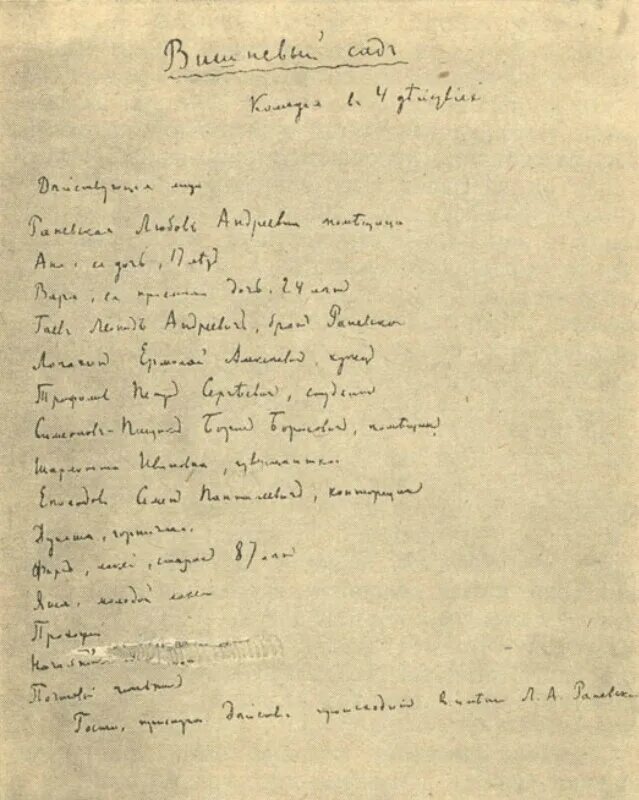 Вишневый садъ
Комедия в 4 действiях
Действующия лица
Раневская Любовь Андреевна помѣщица
Аня, ея дочь, 17 лѣт
Варя, ея приемная дочь, 24 лѣт
Гаев Леонидъ Андреевич, брат Раневской
Лопахин Ермолай Алексеевич, купец
Трофимов Петр Сергѣевич, студент
Симеонов-Пищик Борис Борисович, помѣщик
Шарлотта Ивановна, гувернантка
Епиходов Семен Пантелеевич, конторщик
Дуняша, горничная.
Фирс, лакей, старик 87 лѣт
Яша, молодой лакей
Прохожий
Начальник
Почтовый чиновник
Гости, прислуга. Действ. происходит в имѣнии Л. А. Раневской